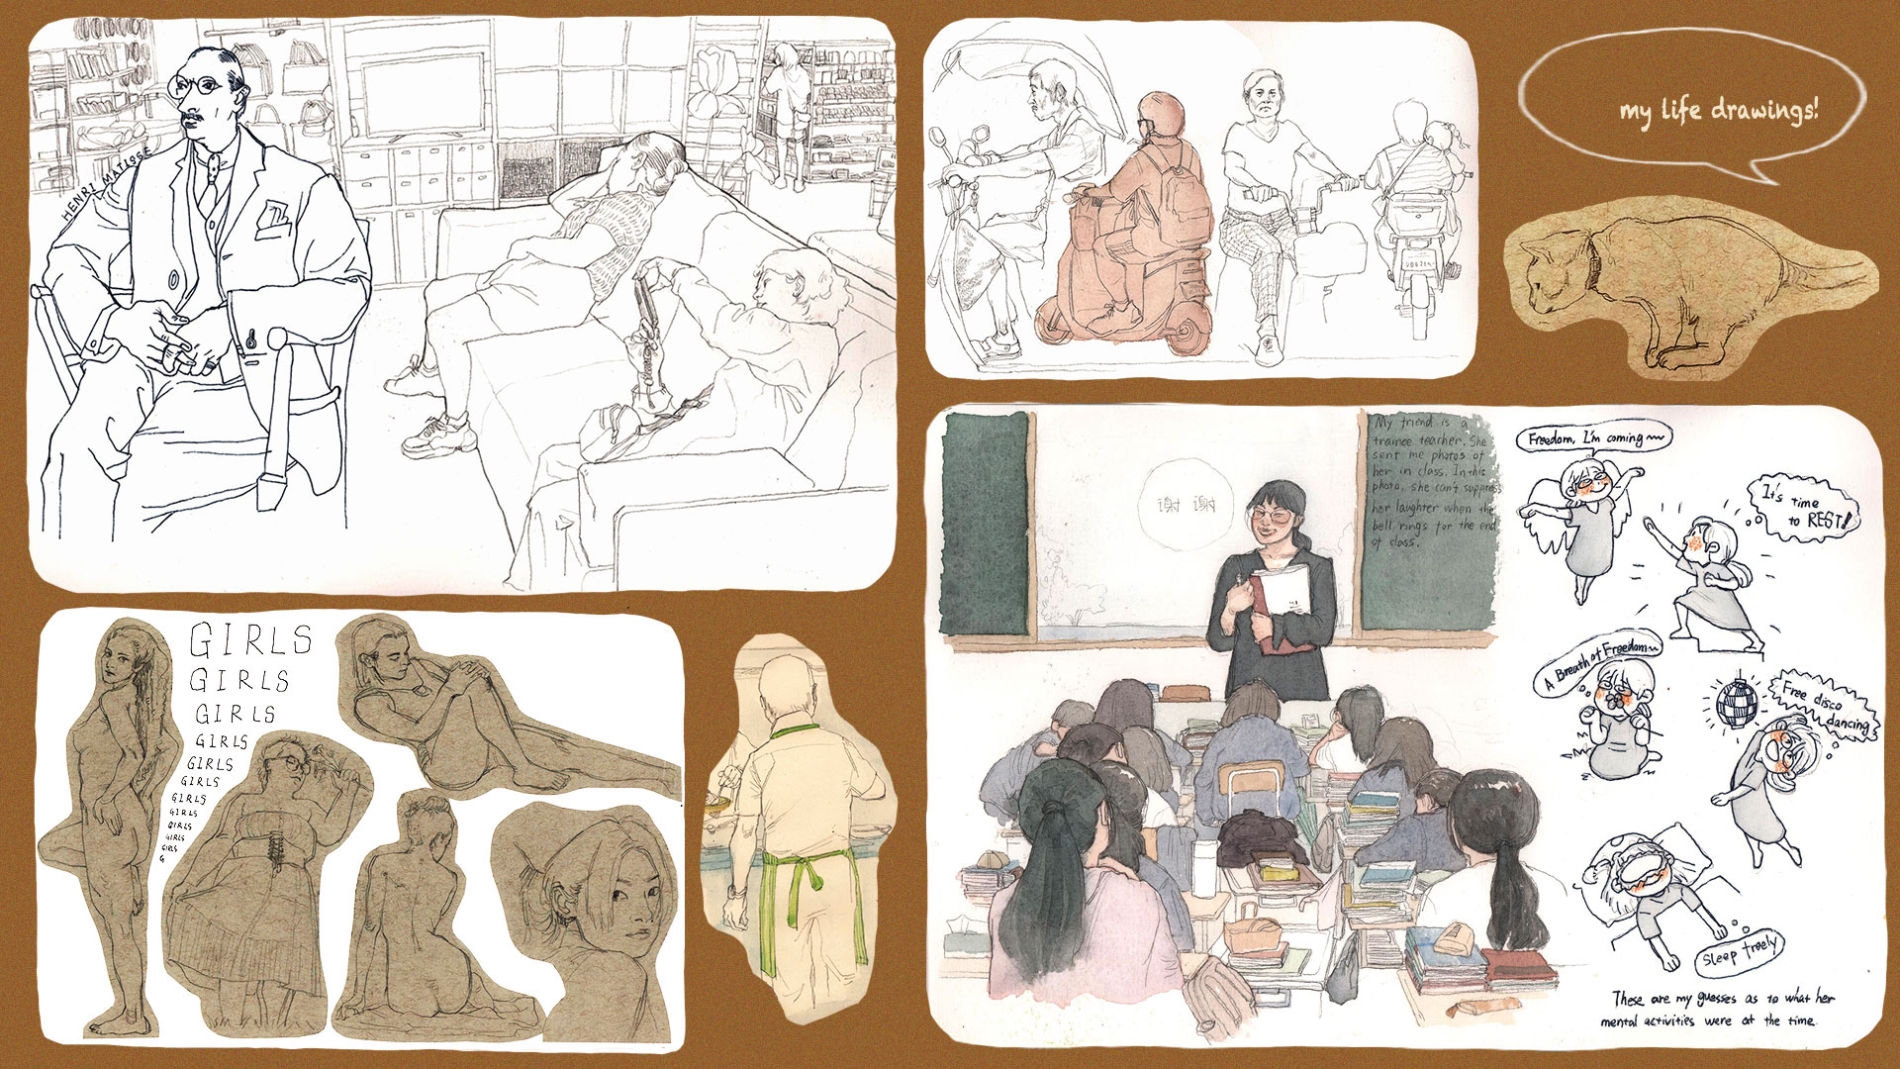 HENRI MATISSE
my life drawings!
GIRLS
GIRLS
GIRLS
GIRLS
GIRLS
GIRLS
GIRLS
GIRLS
GIRLS
GIRLS
GIRLS
G
谢 谢
My friend is a
trainee teacher. She
sent me photos of
her in class. In this
photo, she can't suppress
her laughter when the
bell rings for the end
of class.
Freedom, I'm coming~~
It's time
to REST!
A Breath of Freedom~
Free disco
dancing
Sleep freely
These are my guesses as to what her
mental activities were at the time.